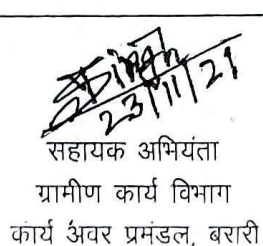 23/11/21
सहायक अभियंता
ग्रामीण कार्य विभाग
कार्य अवर प्रमंडल, बरारी